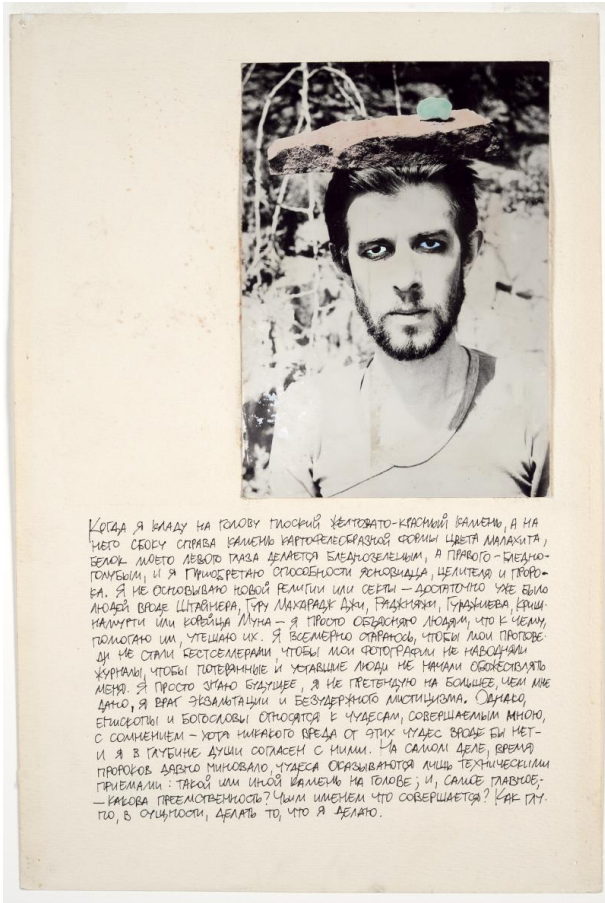 Когда я кладу на голову плоский желтовато-красный камень, а на
него сбоку справа камень картофелеобразной формы цвета малахита,
белок моего левого глаза делается бледнозеленым, а правого – бледно-
голубым, и я приобретаю способности ясновидца, целителя и проро-
ка. Я не основываю новой религии или секты – достаточно уже было
людей вроде Штайнера, Гуру Махарадж Джи, Раджняжи, Гурджиева, Криш-
намурти или корейца Муна – я просто объясняю людям, что к чему,
помогаю им, утешаю их. Я всемерно стараюсь, чтобы мои пропове-
ди не стали бестселлерами, чтобы мои фотографии не наводняли
журналы, чтобы потерянные и уставшие люди не начали обожествлять
меня. Я просто знаю будущее, я не претендую на большее, чем мне
дано, я враг экзальтации и безудержного мистицизма. Однако,
епископы и богословы относятся к чудесам, совершаемым мною,
с сомнением – хотя никакого вреда от этих чудес вроде бы нет –
и я в глубине души согласен с ними. На самом деле, время
пророков давно миновало, чудеса оказываются лишь техническими
приемами: такой или иной камень на голове; и, самое главное, –
– какова преемственность? Чьим именем что совершается? Как глу-
по, в сущности, делать то, что я делаю.